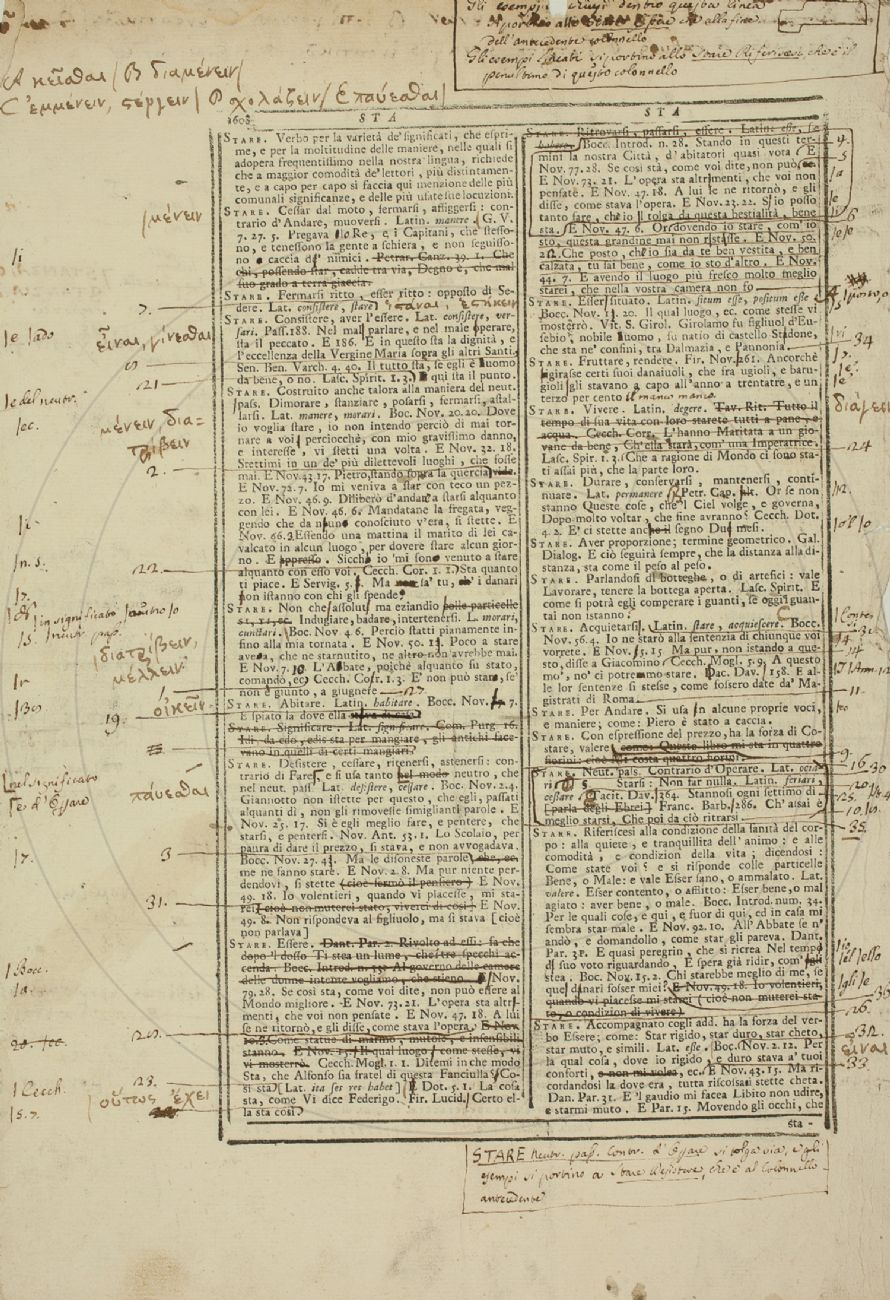 Gli esempj chiusi dentro questa linea
si portino allo Stare Essere che è alla fine
dell'antecedente colonnello
Gli esempj segnati si portino allo Stare Riferirsi, che è il
penultimo di questo colonnello
A κεῖσθαι / B διαμένειν /
C ἐμμένειν, στέργειν / D σχολάζειν / E παύεσθαι /
1608 STA STA
STARE. Verbo per la varietà de' significati, che espri-
me, e per la moltitudine delle maniere, nelle quali si
adopera frequentissimo nella nostra lingua, richiede
che a maggior comodità de' lettori, più distintamen-
te, e a capo per capo si faccia qui menzione delle più
comunali significanze, e delle più usate sue locuzioni.
STARE. Cessar dal moto, fermarsi, affiggersi: con-
trario d'Andare, muoversi. Latin. manere. G. V.
7. 27. 5. Pregava lo Re, e i Capitani, che stesso-
no, e tenessono la gente a schiera, e non seguisso-
no caccia de' nimici. Petrar. Canz. 39. 1. Che
chi, possendo star, cadde tra via, Degno è, che mal
suo grado a terra giaccia.
STARE. Fermarsi ritto, esser ritto: opposto di Se-
dere. Lat. consistere, stare
STARE. Consistere, aver l'essere. Lat. consistere, ver-
sari. Pass. 188. Nel mal parlare, e nel male operare,
sta il peccato. E 186. E in questo sta la dignità, e
l'eccellenza della Vergine Maria sopra gli altri Santi.
Sen. Ben. Varch. 4. 40. Il tutto sta, se egli è uomo
da bene, o no. Lasc. Spirit. 1. 3. E qui sta il punto.
STARE. Costruito anche talora alla maniera del neut.
pass. Dimorare, stanziare, posarsi, fermarsi, astal-
larsi. Lat. manere, morari. Boc. Nov. 20. 20. Dove
io voglia stare, io non intendo perciò di mai tor-
nare a voi; perciocchè, con mio gravissimo danno,
e interesse, vi stetti una volta. E Nov. 32. 18.
Stettimi in un de' più dilettevoli luoghi, che fosse
mai. E Nov. 43. 17. Pietro, stando sopra la quercia, vide.
E Nov. 72. 7. Io mi veniva a star con teco un pez-
zo. E Nov. 46. 9. Diliberò d'andare a starsi alquanto
con lei. E Nov. 46. 6. Mandatane la fregata, veg-
gendo che da niuno conosciuto v'era, si stette. E
Nov. 46. 3. Essendo una mattina il marito di lei ca-
valcato in alcun luogo, per dovere stare alcun gior-
no. E appresso. Sicchè io mi sono venuto a stare
alquanto con esso voi. Cecch. Cor. 1. 1. Sta quanto
ti piace. E Servig. 5. Ma sa' tu, i danari
non istanno con chi gli spende?
STARE. Non che assolut. ma eziandio colle particelle
si, ti, ec. Indugiare, badare, intertenersi. L. morari,
cunctari. Boc. Nov. 4. 6. Perciò statti pianamente in-
fino alla mia tornata. E Nov. 50. 13. Poco a stare
aveva, che ne starnutito, ne altro non avrebbe mai.
E Nov. 7. 10. L'Abate, poichè alquanto fu stato,
comandò, ec. Cecch. Cofr. 1. 3. E' non può stare, se
non è giunto, a giugnere
STARE. Abitare. Latin. habitare. Bocc. Nov. 7.
E spiato la dove ella stava di casa.
STARE. Significare. Lat. significare. Com. Purg. 16.
Idi, da edo, edis sta per mangiare, gli antichi face-
vano in quelli di certi mangiari.
STARE. Desistere, cessare, ritenersi, astenersi: con-
trario di Fare, e si usa tanto nel modo neutro, che
nel neut. pass. Lat. desistere, cessare. Boc. Nov. 2. 4.
Giannotto non istette per questo, che egli, passati
alquanti dì, non gli rimovesse simiglianti parole. E
Nov. 25. 17. Si è egli meglio fare, e pentere, che
starsi, e pentersi. Nov. Ant. 53. 1. Lo Scolaio, per
paura di dare il prezzo, si stava, e non avvogadava.
Bocc. Nov. 27. 43. Ma le disoneste parole, che, ec.
me ne sanno stare. E Nov. 2. 8. Ma pur niente per-
dendovi, si stette (cioè fermò il pensiero) E Nov.
49. 18. Io volentieri, quando vi piacesse, mi sta-
rei (cioè non muterei stato, viverei di così) E Nov.
49. 8. Non rispondeva al figliuolo, ma si stava [cioè
non parlava]
STARE. Essere. Dant. Par. 2. Rivolto ad essi: fa che
dopo 'l dosso Ti stea un lume, che i tre specchi ac-
cenda. Bocc. Introd. n. 53. Al governo delle camere
delle donne intente vogliamo, che stieno. Nov.
79. 28. Se così sta, come voi dite, non può essere al
Mondo migliore. E Nov. 73. 21. L'opera sta altri-
menti, che voi non pensate. E Nov. 47. 18. A lui
se ne ritornò, e gli disse, come stava l'opera. E Nov.
10. 8. Come statue di marmo, mutole, e insensibili
stanno. E Nov. 15. Il qual luogo, come stesse, vi
vi mosterrò. Cecch. Mogl. 1. 1. Ditemi in che modo
Sta, che Alfonso sia fratel di questa Fanciulla? Co-
sì sta. Lat. ita ses res habet. E Dot. 5. 1. La cosa
sta, come Vi dice Federigo. Fir. Lucid. Certo el-
la sta così?
STARE. Ritrovarsi, passarsi, essere. Latin. esse, se
habere. Bocc. Introd. n. 28. Stando in questi ter-
mini la nostra Città, d'abitatori quasi vota. E
Nov. 77. 28. Se così stà, come voi dite, non può, ec.
E Nov. 73. 21. L'opera sta altrimenti, che voi non
pensate. E Nov. 47. 18. A lui se ne ritornò, e gli
disse, come stava l'opera. E Nov. 23. 22. S'io posso
tanto fare, ch'io il tolga da questa bestialità, bene
sta. E Nov. 47. 6. Or dovendo io stare, com'io
sto, questa grandine mai non ristesse. E Nov. 50.
21. Che posto, ch'io sia da te ben vestita, e ben
calzata, tu sai bene, come io sto d'altro. E Nov.
44. 7. E avendo il luogo più fresco molto meglio
starei, che nella vostra camera non fo
STARE. Esser situato. Latin. situm esse, positum esse
Bocc. Nov. 15. 20. Il qual luogo, ec. come stesse vi
mosterrò. Vit. S. Girol. Girolamo fu figliuol d'Eu-
sebio, nobile uomo, fu natio di castello Stridone,
che sta ne' confini, tra Dalmazia, e Pannonia.
STARE. Fruttare, rendere. Fir. Nov. 261. Ancorchè
girasse certi suoi danaiuoli, che fra ugioli, e baru-
gioli gli stavano a capo all'anno a trentatre, e un
terzo per cento il manco manco.
STARE. Vivere. Latin. degere. Tav. Rit. Tutto il
tempo di sua vita con loro starete tutti a pane, e
acqua. Cecch. Corr. L'hanno Maritata a un gio-
vane da bene, Ch'ella starà, com'una Imperatrice.
Lasc. Spir. 1. 3. Che a ragione di Mondo ci sono sta-
ti assai più, che la parte loro.
STARE. Durare, conservarsi, mantenersi, conti-
nuare. Lat. permanere. Petr. Cap. Or se non
stanno Queste cose, che 'l Ciel volge, e governa,
Dopo molto voltar, che fine avranno? Cecch. Dot.
4. 2. E' ci stette anche il segno Due mesi.
STARE. Aver proporzione; termine geometrico. Gal.
Dialog. E ciò seguirà sempre, che la distanza alla di-
stanza, sta come il peso al peso.
STARE. Parlandosi di botteghe, o di artefici: vale
Lavorare, tenere la bottega aperta. Lasc. Spirit. E
come si potrà egli comperare i guanti, se oggi guan-
tai non istanno.
STARE. Acquietarsi. Latin. stare, acquiescere. Bocc.
Nov. 56. 4. Io ne starò alla sentenzia di chiunque voi
vorrete. E Nov. 5. 15 Ma pur, non istando a que-
sto, disse a Giacomino. Cecch. Mogl. 5. 9. A questo
mo', no' ci potremmo stare. Dac. Dav. 158. E al-
le lor sentenze si stesse, come fossero date da' Ma-
gistrati di Roma.
STARE. Per Andare. Si usa in alcune proprie voci,
e maniere; come: Piero è stato a caccia.
STARE. Con espressione del prezzo, ha la forza di Co-
stare, valere: come: Questo libro mi sta in quattro
fiorini: cioè mi costa quattro fiorini.
STARE. Neut. pass. Contrario d'Operare. Lat. otia-
ri. § Starsi: Non far nulla. Latin. feriari,
cessare. Tacit. Dav. 364. Stannosi ogni settimo dì
[parla degli Ebrei] Franc. Barb. 286. Ch' assai è
meglio starsi, Che poi da ciò ritrarsi
STARE. Riferiscesi alla condizione della sanità del cor-
po: alla quiete, e tranquillità dell'animo: e alle
comodità, e condizion della vita; dicendosi:
Come state voi? e si risponde colle particelle
Bene, o Male: e vale Esser sano, o ammalato. Lat.
valere. Esser contento, o afflitto: Esser bene, o mal
agiato: aver bene, o male. Bocc. Introd. num. 34.
Per le quali cose, e qui, e fuor di qui, ed in casa mi
sembra star male. E Nov. 92. 10. All'Abbate se n'
andò, e domandollo, come star gli pareva. Dant.
Par. 31. E quasi peregrin, che si ricrea Nel tempo
di suo voto riguardando, E spera già ridir, com'
stea. Boc. Nov. 15. 2. Chi starebbe meglio di me, se
que' danari fosser miei? E Nov. 49. 18. Io volentieri,
quando vi piacesse mi starei (cioè non muterei sta-
to, o condizion di vivere)
STARE. Accompagnato cogli add. ha la forza del ver-
bo Essere; come: Star rigido, star duro, star cheto,
star muto, e simili. Lat. esse. Boc. Nov. 2. 12. Per
la qual cosa, dove io rigido, e duro stava a' tuoi
conforti, e non mi volea, ec. E Nov. 43. 15. Ma ri-
cordandosi la dove era, tutta riscossasi stette cheta.
Dan. Par. 31. E 'l gaudio mi facea Libito non udire,
e starmi muto. E Par. 15. Movendo gli occhi, che
sta-
μένειν
εἶναι, γίνεσθαι
21
μένειν, δια-
τρίβειν
2.
22.
διατρίβειν,
μέλλειν
19. οἰκεῖν
παύεσθαι
3
31.
23.
οὕτως ἔχει
34
24
11.
35.
26.
32.
εἶναι
33
STARE neutr. pass. contr. d'Operare si tolga via, e gli
esempj si portino a Stare Desistere, che è al Colonnello
antecedente